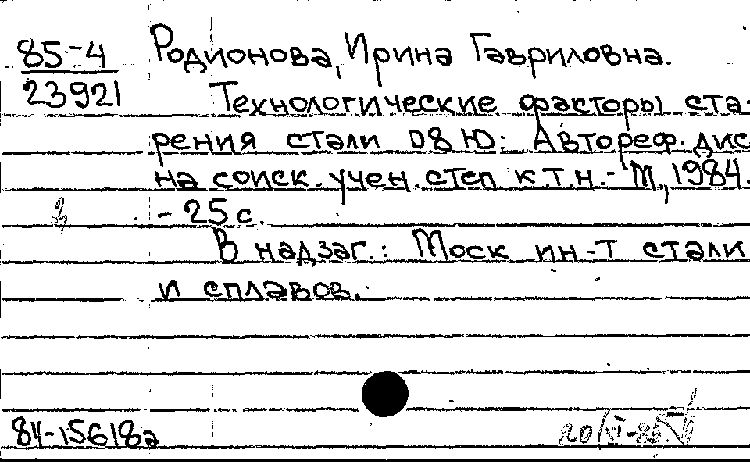 85-4
23921
Родионова, Ирина Гавриловна.
Технологические факторы ста-
рения стали 08 Ю: Автореф. дис
на соиск. учен. степ к.т.н. - М., 1984.
- 25 с.
В надзаг.: Моск ин-т стали
и сплавов.
84-15618а